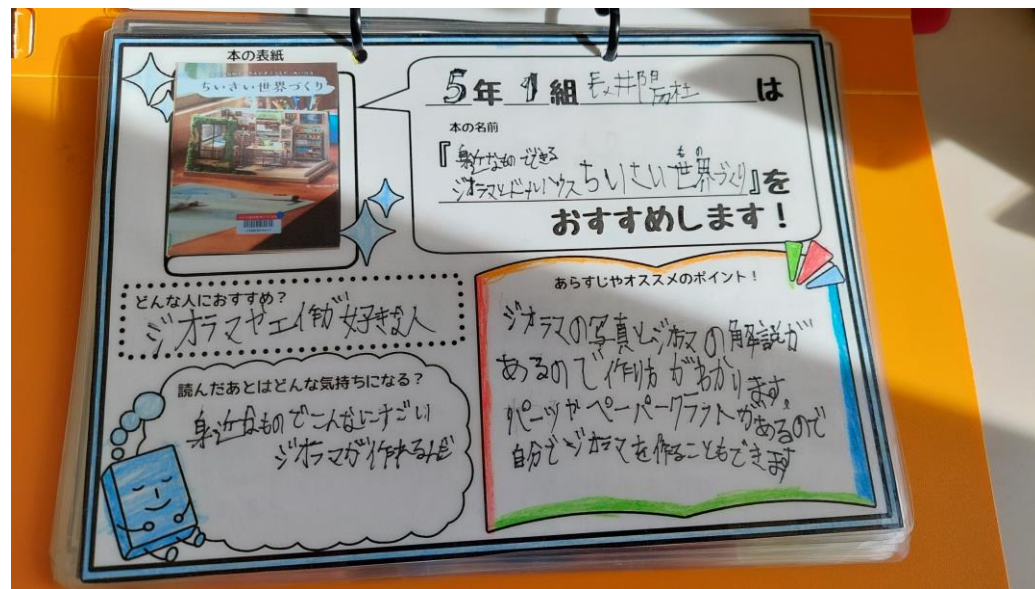 本の表紙
ちいさい世界づくり
5年1組 は
本の名前
『身近なものでできる
ジオラマとドールハウス ちいさい世界づくり』を
もの
おすすめします!
どんな人におすすめ?
ジオラマや工作が好きな人
読んだあとはどんな気持ちになる?
身近なものでこんなにすごい
ジオラマが作れるんだ
あらすじやオススメのポイント!
ジオラマの写真とジオラマの解説が
あるので作り方がわかります。
パーツやペーパークラフトがあるので
自分でジオラマを作ることもできます